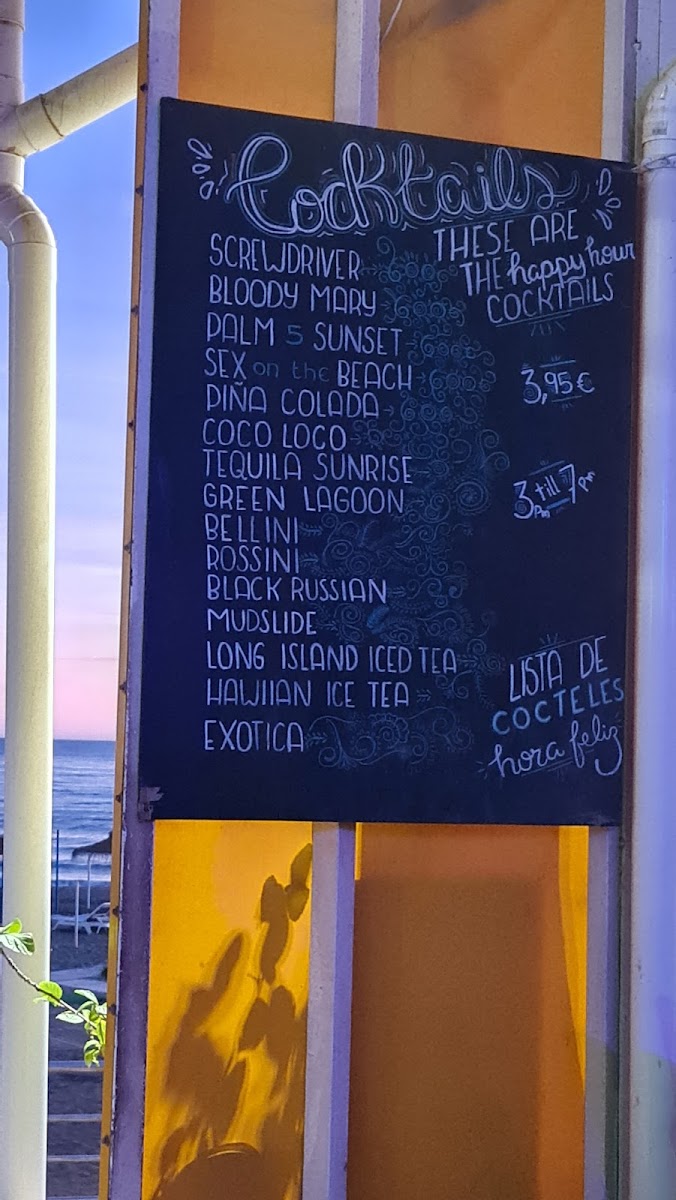 Cocktails
THESE ARE
THE happy hour
COCKTAILS
SCREWDRIVER
BLOODY MARY
PALM 5 SUNSET
SEX on the BEACH
PIÑA COLADA
COCO LOCO
TEQUILA SUNRISE
GREEN LAGOON
BELLINI
ROSSINI
BLACK RUSSIAN
MUDSLIDE
LONG ISLAND ICED TEA
HAWIIAN ICE TEA
EXOTICA
3,95€
3PM till 7PM
LISTA DE
COCTELES
hora feliz